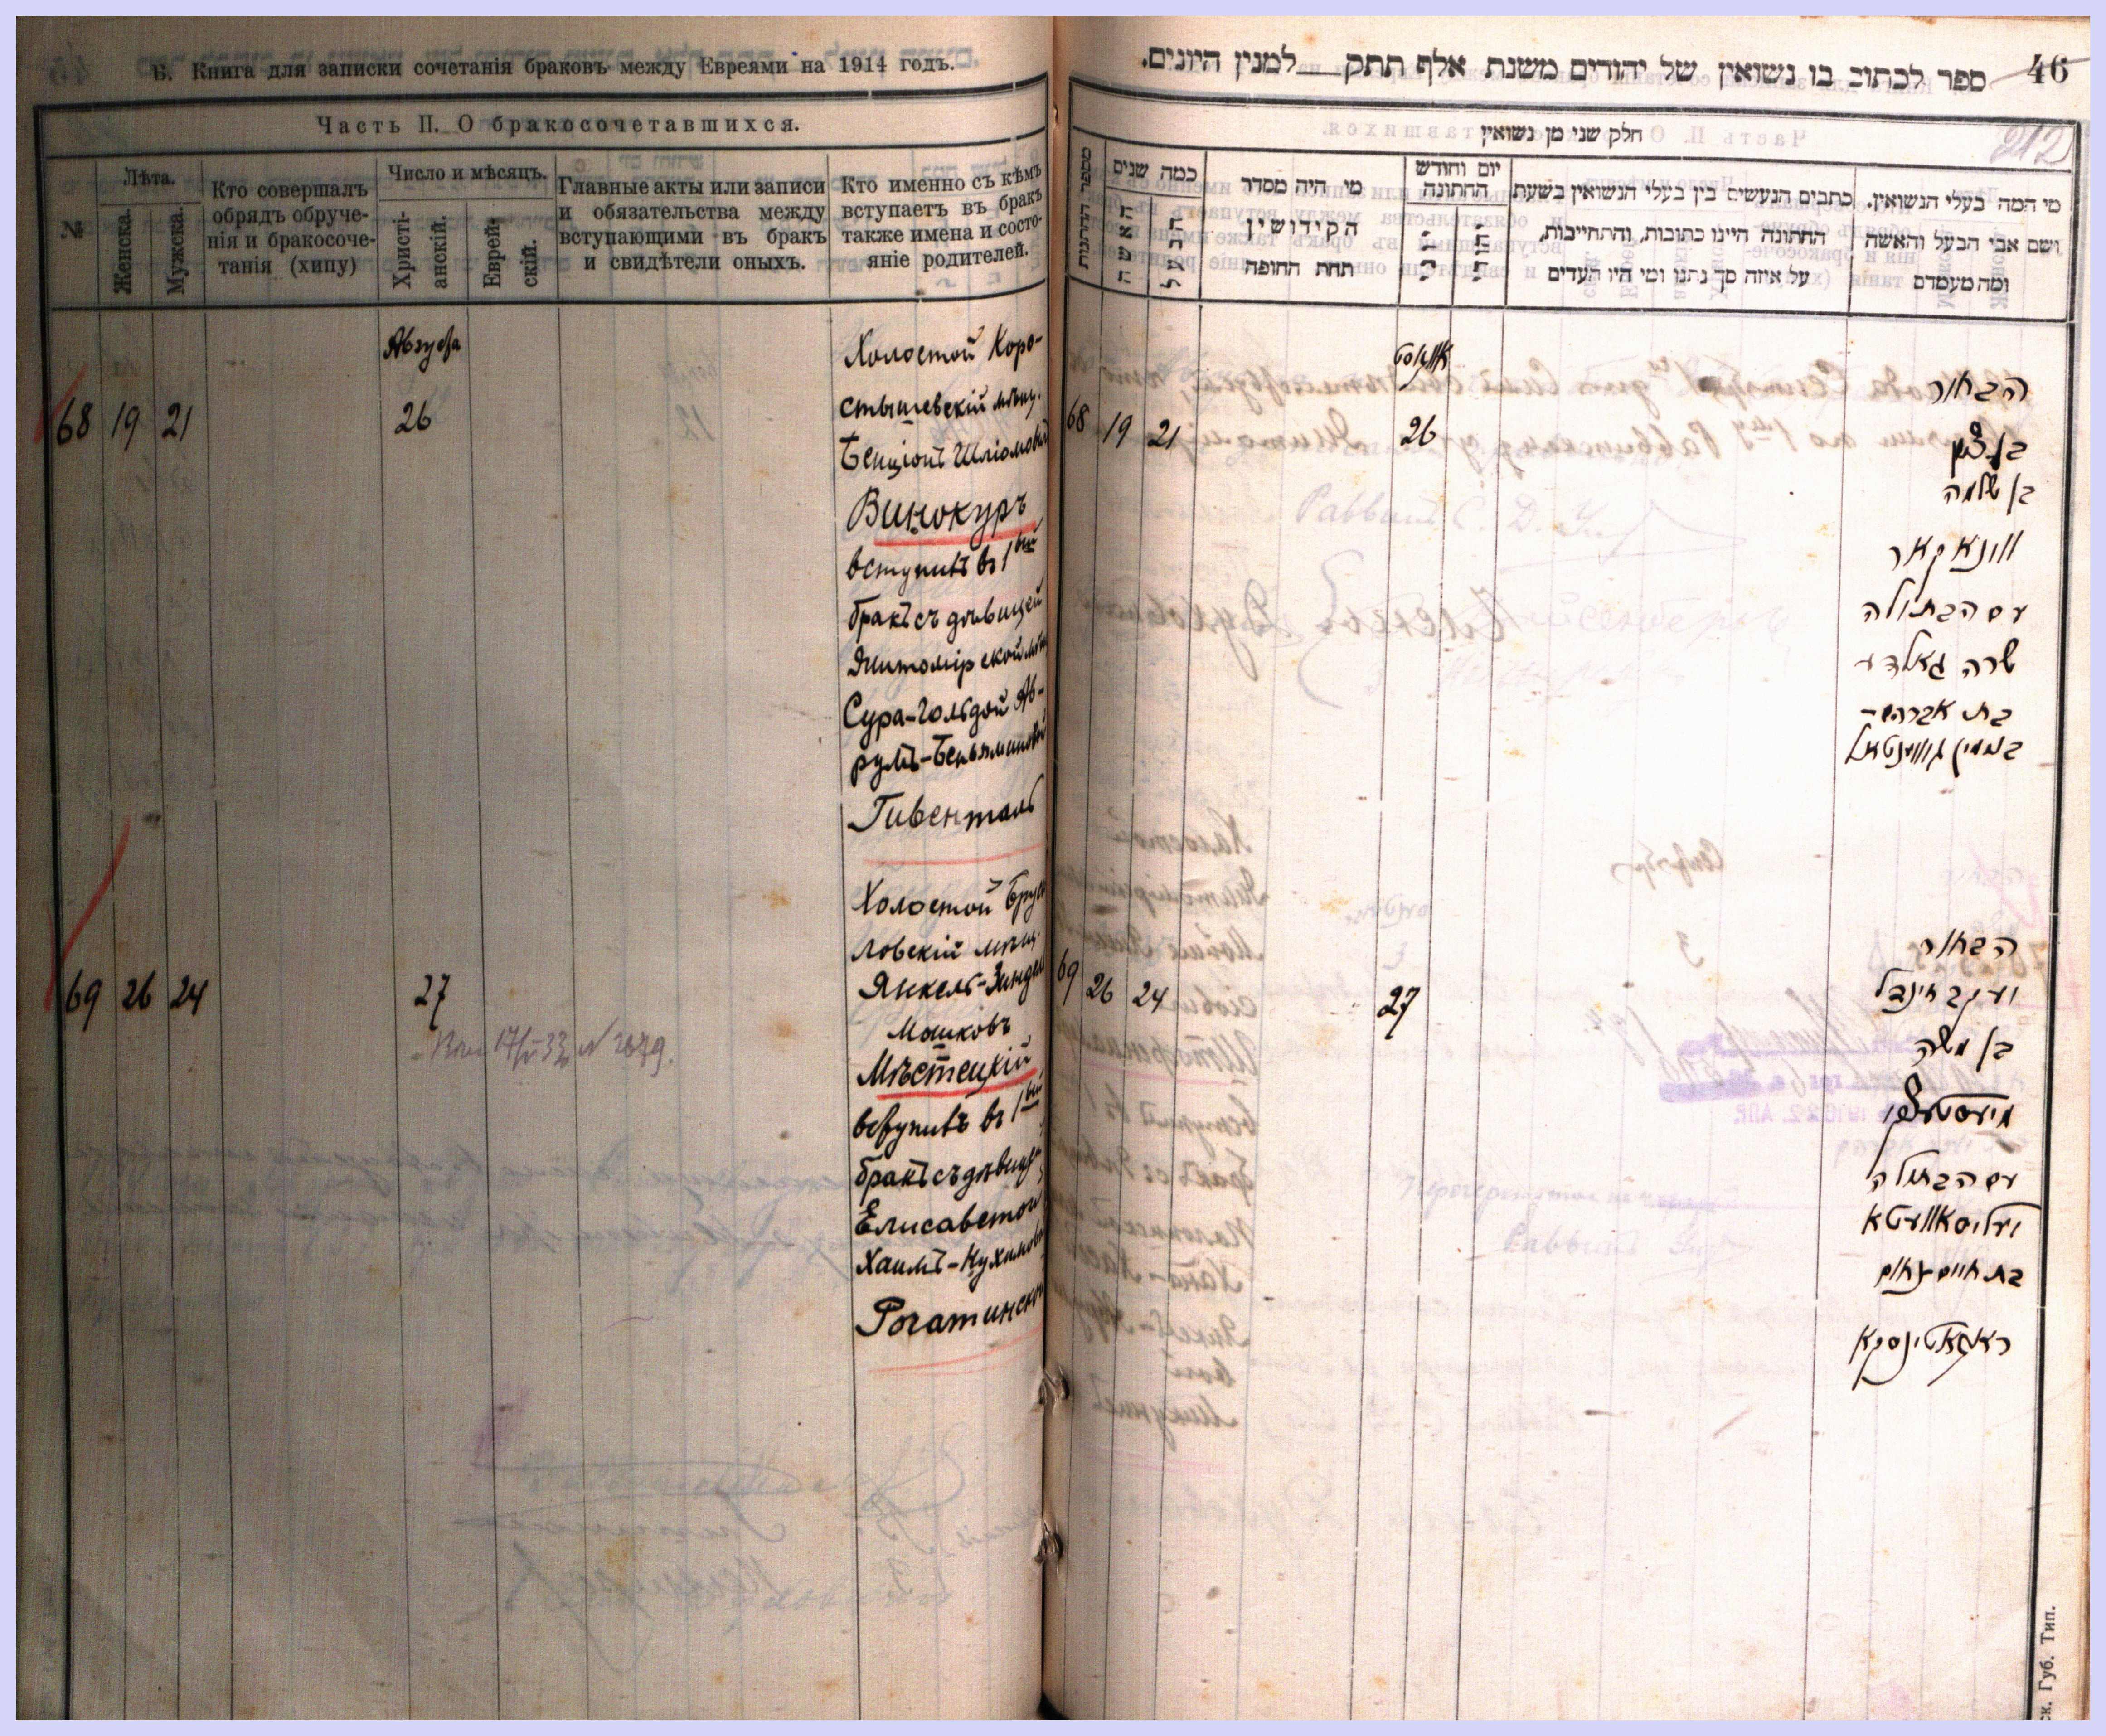 Б. Книга для записки сочетанія браковъ между Евреями на 1914 годъ.
Часть II. О бракосочетавшихся.
№
Лѣта.
Женска.
Мужска.
Кто совершалъ
обрядъ обруче-
нія и бракосоче-
танія (хипу)
Число и мѣсяцъ.
Христі-
анскій.
Еврей-
скій.
Главные акты или записи
и обязательства между
вступающими въ бракъ
и свидѣтели оныхъ.
Кто именно съ кѣмъ
вступаетъ въ бракъ
также имена и состо-
яніе родителей.
Августа
68 19 21 26
Холостой Коро-
стышевскій мѣщ.
Бенціонъ Шліомовъ
Винокуръ
вступилъ въ 1ый
бракъ съ дѣвицей
Житомірской мѣщ
Сура-Гольдой Аб-
румъ-Беньяминовой
Гивенталь
69 26 24 27
Холостой Бруси
ловскій мѣщ.
Янкель-Зиндел
Мошковъ
Мѣстецкій
вступилъ въ 1ый
бракъ съ дѣвицей
Елисаветой
Хаимъ-Нухимов
Рогатинской
46
ספר לכתוב בו נשואין של יהודים משנת אלף תתק למנין היונים.
212
חלק שני מן נשואין
מספר החתנות
כמה שנים
האשה
הבעל
מי היה מסדר
הקידושין
תחת החופה
יום וחודש
החתונה
כתבים הנעשים בין בעלי הנשואין בשעת
החתונה היינו כתובות, והתחייבות,
על איזה סך נתנו ומי היו העדים
מי המה בעלי הנשואין.
ושם אבי הבעל והאשה
ומה מעמדם
אווגוסט
68 19 21 26
הבחור
בן ציון
בן שלמה
ווינאקאר
עם הבתולה
שרה גאלדע
בת אברהם-
בנמין גיווענטאל
69 26 24 27
הבחור
יעקב זינדל
בן משה
מיעסטעצקי
עם הבתולה
יעליסאוועטא
בת חיים נחום
ראגאטינסקא
ск. Губ. Тип.